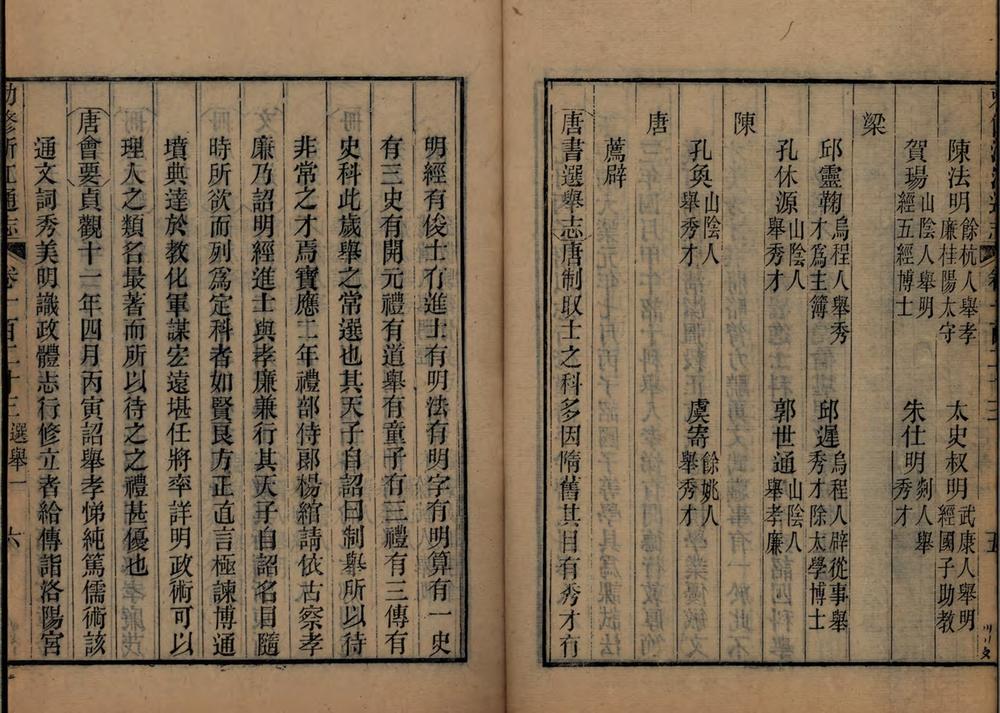 陳法明餘杭人舉孝廉桂陽太守 太史叔明武康人舉明經國子助教
賀瑒山陰人舉明經五經博士 朱仕明剡人舉秀才
梁
邱靈鞠烏程人舉秀才爲主簿 邱遲烏程人辟從事舉秀才除太學博士
孔休源山陰人舉秀才 郭世通山陰人舉孝廉
陳
孔奐山陰人舉秀才 虞寄餘姚人舉秀才
唐
薦辟
唐書選舉志唐制取士之科多因隋舊其目有秀才有
明經有俊士有進士有明法有明字有明算有一史
有三史有開元禮有道舉有童子有三禮有三傳有
史科此歲舉之常選也其天子自詔曰制舉所以待
非常之才焉寶應二年禮部侍郞楊綰請依古察孝
廉乃詔明經進士與孝廉兼行其天子自詔名目隨
時所欲而列爲定科者如賢良方正直言極諫博通
墳典達於教化軍謀宏遠堪任將率詳明政術可以
理人之類名最著而所以待之之禮甚優也
唐會要貞觀十一年四月丙寅詔舉孝悌純篤儒術該
通文詞秀美明識政體志行修立者給傳詣洛陽宮
勅修浙江通志 卷一百二十三選舉一 六